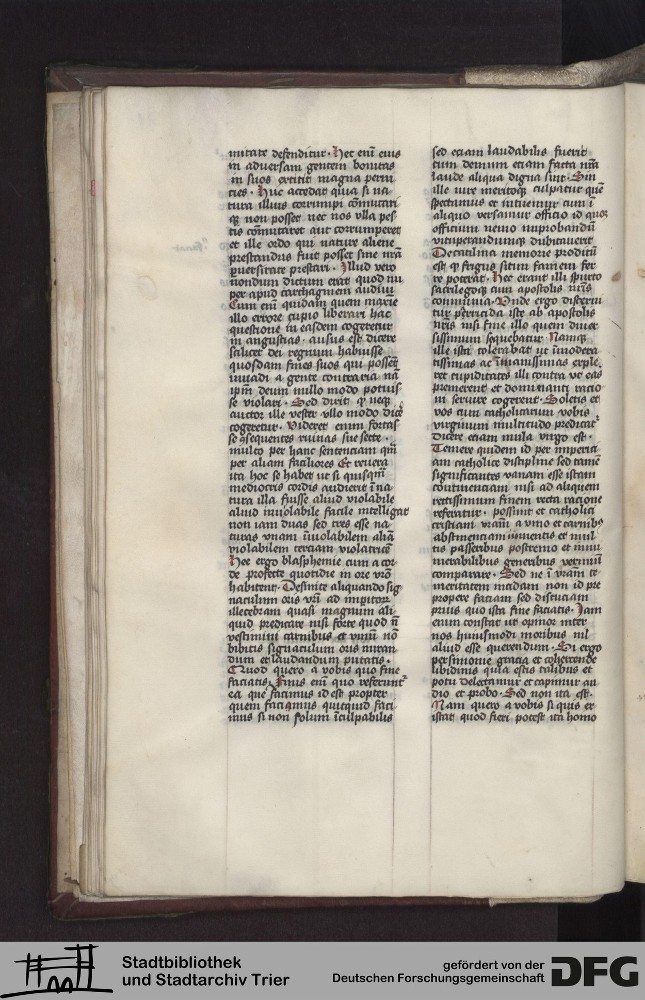 mitate defenditur. Hec enī eius
in adversam gentem bonitas
in suos extitit magna perni
cies. Huc accedat quia si na
tura illius corrumpi cōmutari
qȝ non posset nec nos vlla pes
tis cōmutaret aut corrumperet
et ille ordo qui nature aliene
prestandus fuit posset sine nr̄a
ꝑuersitate prestari. Illud vero
nondum dictum erat quod nu
per apud carthaginem audiui
Cum enī quidam quem maxīe
illo errore cupio liberari hac
questione in easdem cogeretur
in angustias. ausus est dicere
scilicet dei regnum habuisse
quosdam fines suos qui possēt
inuadi a gente contraria nā
ip̄m deum nullo modo potuis
se violari. Sed dixit qȝ neqȝ
auctor ille vester vllo modo dicē
cogeretur. Videret enim fortas
se ɔsequentes ruinas sue secte.
multo per hanc sententiam qm̄
per aliam faciliores Et reuera
ita hoc se habet ut si quisqm̄
mediocris cordis audierit ī na
tura illa fuisse aliud violabile
aliud inuiolabile facile intelligat
non iam duas sed tres esse na
turas vnam īuiolabilem aliā
violabilem terciam violatricē
Hec ergo blasphemie cum a cor
de profecte quotidie in ore vr̄o
habitent. Desinite aliquando sig
naculum oris vr̄i ad imꝑitorr̄
illecebram quasi magnum ali
quid predicare nisi forte quod n̄
vescimini carnibus et vinū nō
bibitis signaculum oris miran
dum et laudandum putatis.
Quod quero a vobis quo fine
faciatis. Finis enī quo referunt
ea que facimus id est propter
quem facimus quicquid faci
mus si non solum īculpabilis
sed eciam laudabilis fuerit
tum demum eciam facta nr̄a
laude aliqua digna sint. Sin
ille iure meritoqȝ culpatur quē
spectamus et intuemur cum ī
aliquo versamur officio id quoqȝ
officium nemo improbandū
vituperandumqȝ dubitauerit
De catilina memorie proditū
est qȝ frigus sitim famem fer
re poterat. Hec erant illi spurco
sacrilegoqȝ cum apostolis nr̄is
communia. Vnde ergo discerni
tur perricida iste ab apostolis
nr̄is nisi fine illo quem diuer
sissimum sequebatur Namqȝ
ille ista tolerabat ut īmodera
tissimas ac īmanissimas exple
ret cupiditates illi contra vt eas
premerent et dominanti racio
ni servire cogerent. Soletis et
vos cum catholicarum vobis
virginum multitudo predicat
dicere eciam mula virgo est.
Temere quidem id per imperici
am catholice discipline sed tamē
significantes vanam esse istam
continenciam nisi ad aliquem
rectissimum finem recta racione
referatur. possunt et catholici
cristiani vr̄am a vino et carnibȝ
abstinenciam iumentis et mul
tis passeribus postremo et innu
merabilibus generibus vermiū
comparare. Sed ne ī vr̄am te
meritatem incidam non id pre
propere faciam sed discuciam
prius quo ista fine faciatis. Jam
enim constat ut opinor inter
nos huiusmodi moribus nil
aliud esse querendum. Si ergo
libidinis gula escis talibus et
potu delectamur et capimur au
dio et probo. Sed non ita est.
Nam quero a vobis si quis ex
istat quod fieri potest ita homo
Stadtbibliothek
und Stadtarchiv Trier
gefördert von der
Deutschen Forschungsgemeinschaft
DFG